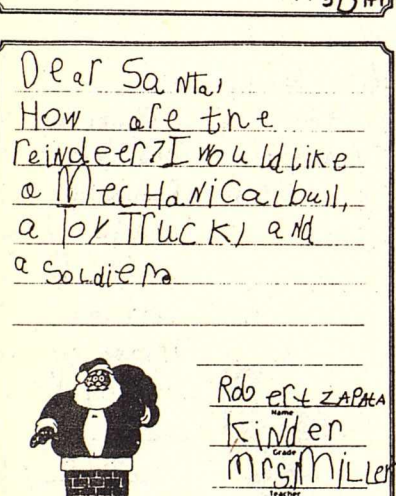 Dear Santa,
How are the
reindeer? I would like
a Mechanical bull,
a Toy Truck, and
a Soldier.
Robert ZAPATA
Name
Kinder
Grade
Mrs. Miller
Teacher